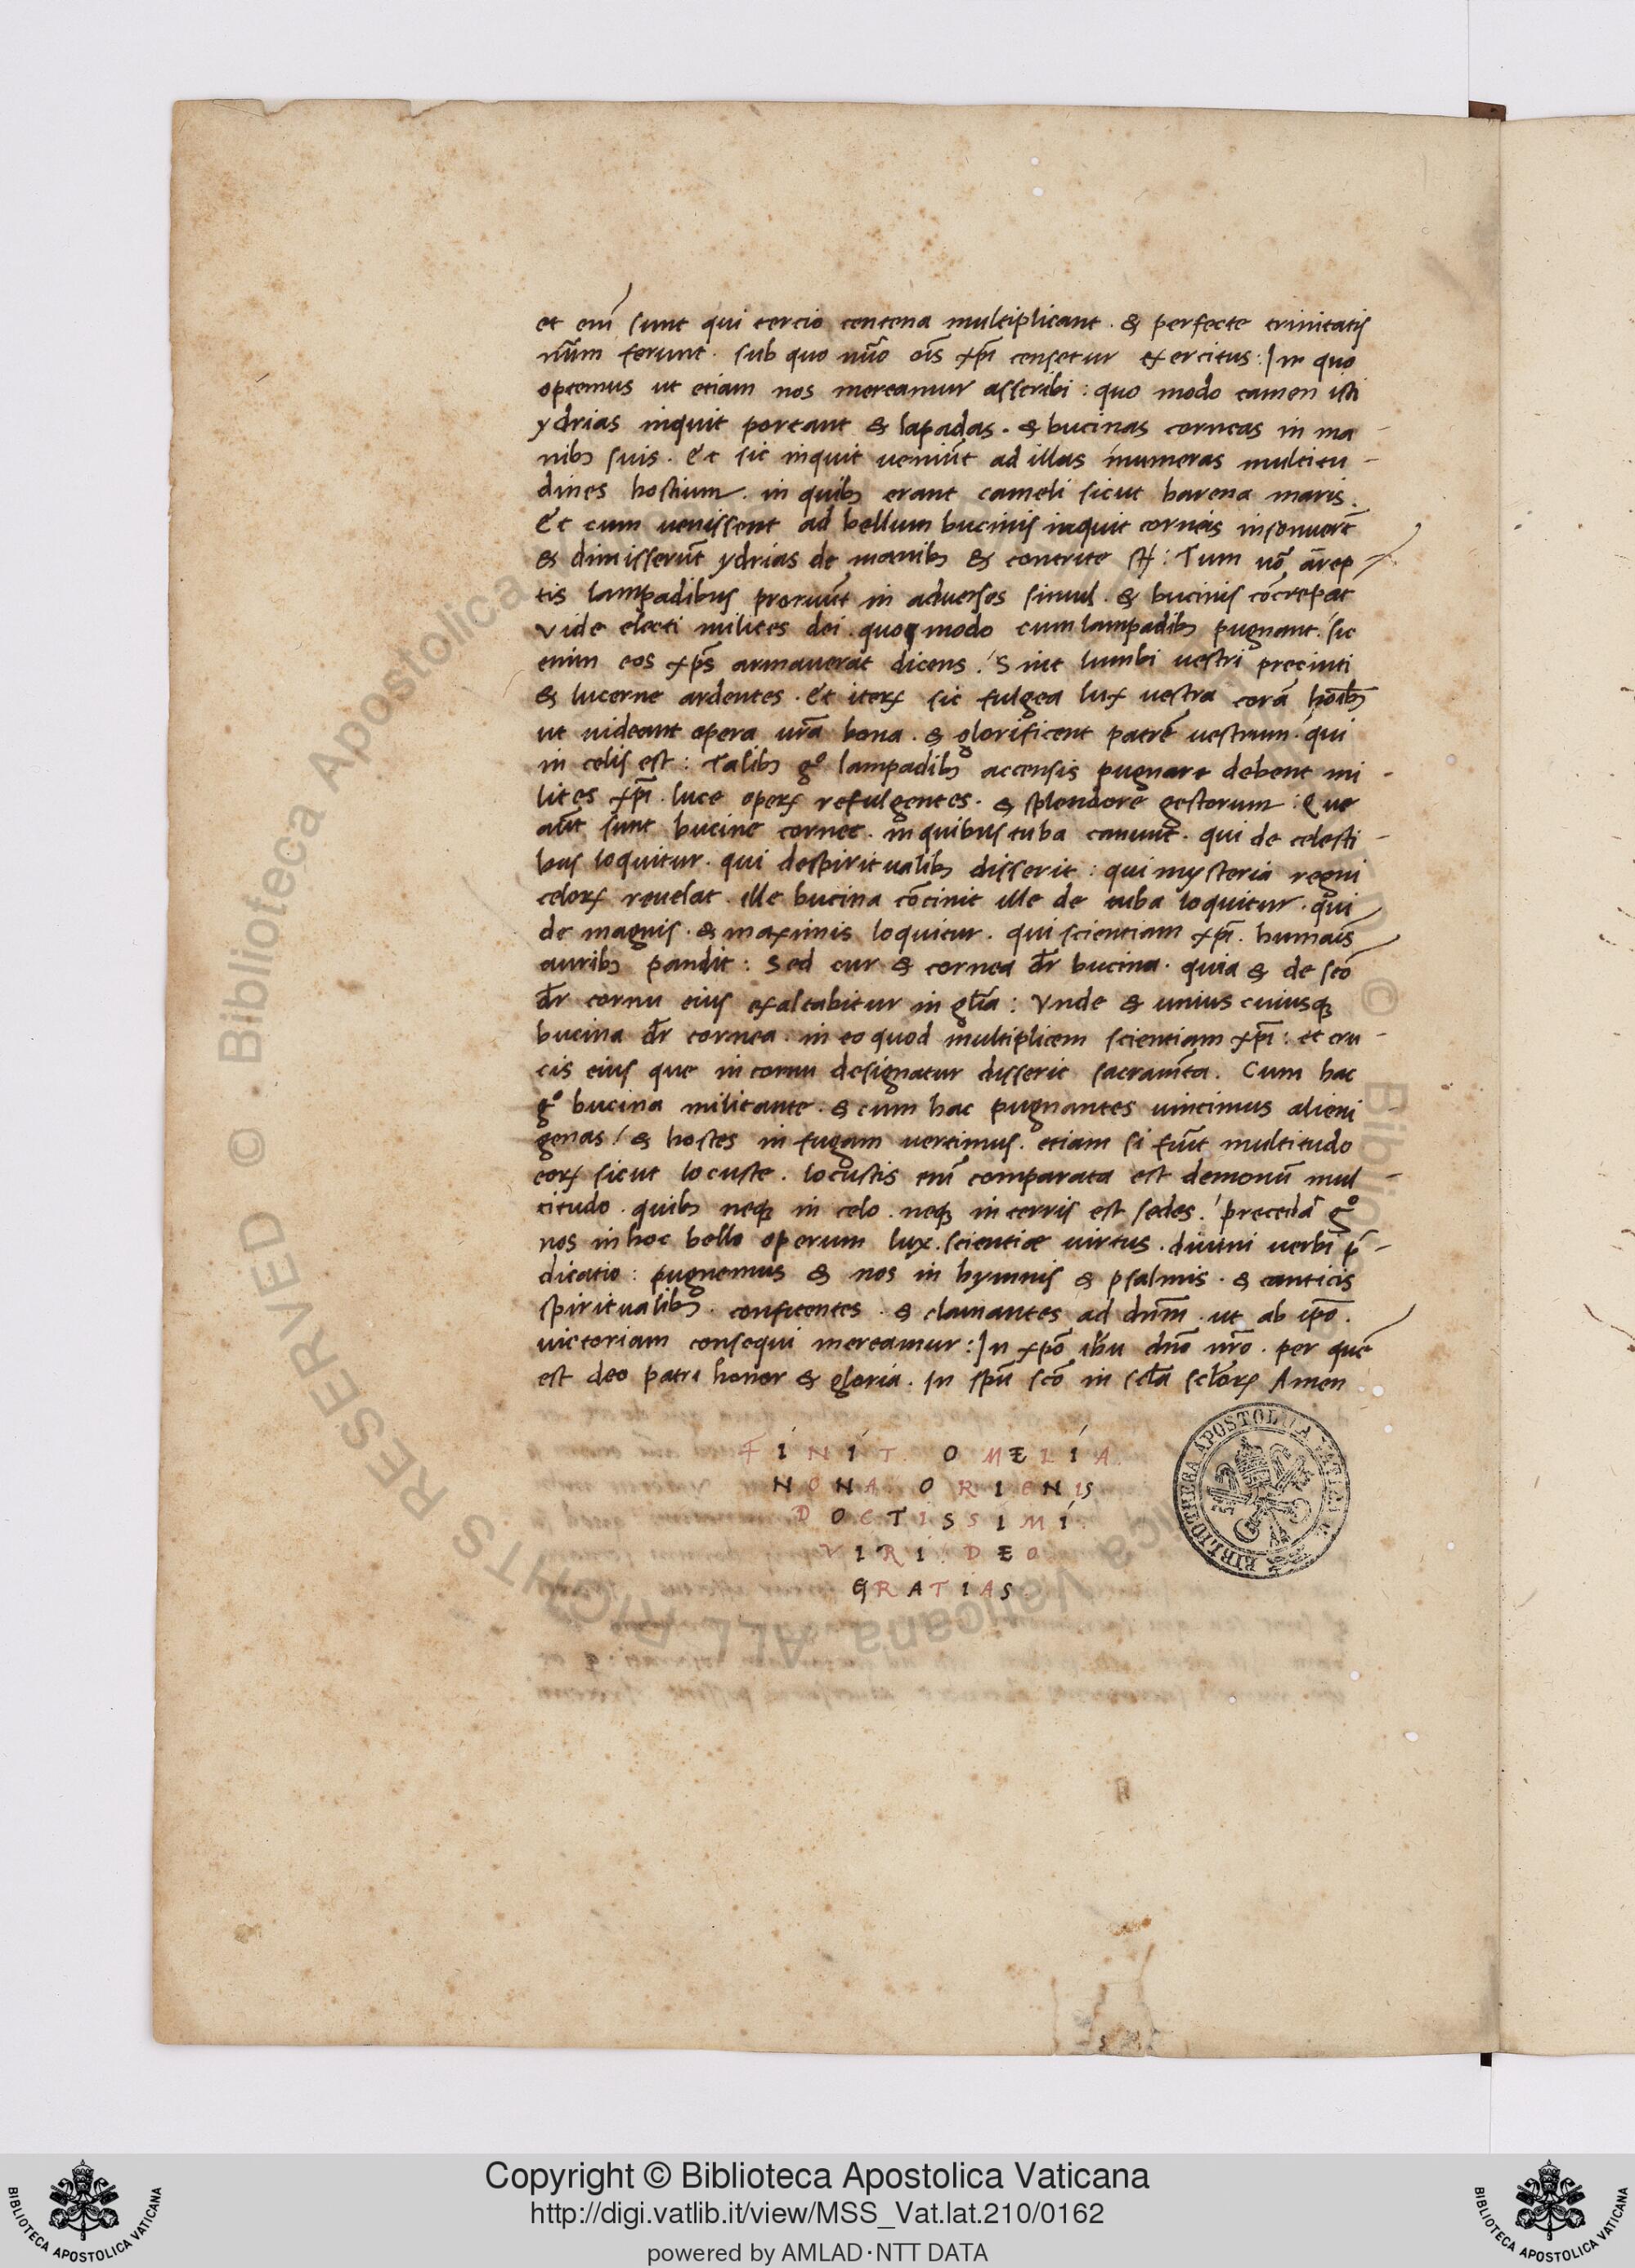 et em̄ sunt qui tercio centena multiplicant · & perfecte trinitatis
nūm ferunt · sub quo nūo oīs xp̄i censetur exercitus : In quo
optemus ut etiam nos mereamur asscribi : quo modo tamen isti
ydrias inquit portant & lapadas · & bucinas corneas in ma -
nibꝫ suis · Et sic inquit ueniūt ad illas inumeras multitu -
dines hostium · in quibꝫ erant cameli sicut harena maris ·
Et cum uenissent ad bellum bucinis inquit corneis insonuer̄t
& dimisserūt ydrias de manibꝫ & contrite st̄ : Tum uō ārep
tis lampadibus proruūt in aduersos simul · & bucinis cōcrepāt
Vide electi milites dei · quo modo cum lampadibꝫ pugnant · sic
enim eos xp̄s armauerat dicens · Sint lumbi uestri precinti
& lucerne ardentes · Et iterꝝ sic fulgea lux uestra corā hoībꝫ
ut uideant opera ur̄a bona · & glorificent patrē uestrum · qui
in celis est : Talibꝫ gº lampadibꝫ accensis pugnare debent mi -
lites xp̄i · luce operꝝ refulgentes · & splendore gestorum : Que
aūt sunt bucine cornee · in quibus tuba canunt · qui de celesti -
bus loquitur · qui de spiritualibꝫ disserit : qui mysteria regni
celorꝝ reuelat · ille bucina cōcinit ille de tuba loquitur · qui
de magnis · & maximis loquitur · qui scientiam xp̄i · humaīs
auribꝫ pandit : Sed cur & cornea dr̄ bucina · quia & de scō
dr̄ cornu eius exaltabitur in gl̄ia : Vnde & unius cuiusqꝫ
bucina dr̄ cornea · in eo quod multiplicem scientiam xp̄i : et cru -
cis eius que in cornu designatur disserit sacram̄ta . Cum hac
gº bucina militante · & cum hac pugnantes uincimus alieni -
genas / & hostes in fugam uertimus · etiam si fuīt multitudo
eorꝝ sicut locuste · locustis em̄ comparata est demonū mul -
titudo · quibꝫ neqꝫ in celo · neqꝫ in terris est sedes · precedā gº
nos in hoc bello operum lux · scientiæ uirtus · diuini uerbi p̄ -
dicatio : pugnemus & nos in hymnis & psalmis · & canticis
spiritualibꝫ · confitentes · & clamantes ad dn̄m · ut ab ip̄o ·
uictoriam consequi mereamur : In xp̄o ih̄u dn̄o nr̄o · per quē
est deo patri honor & gloria · In spū scō in scl̄a scl̄orꝝ Amen
FINIT OMELIA
NONA ORIENIS
DOCTISSIMI
VIRI : DEO
GRATIAS
BIBLIOTHECA APOSTOLICA VATICANA
© Biblioteca Apostolica Vaticana ALL RIGHTS RESERVED
© Biblio
Copyright © Biblioteca Apostolica Vaticana
http://digi.vatlib.it/view/MSS_Vat.lat.210/0162
powered by AMLAD·NTT DATA
BIBLIOTECA APOSTOLICA VATICANA
BIBLIOTECA APOSTOLICA VATICANA